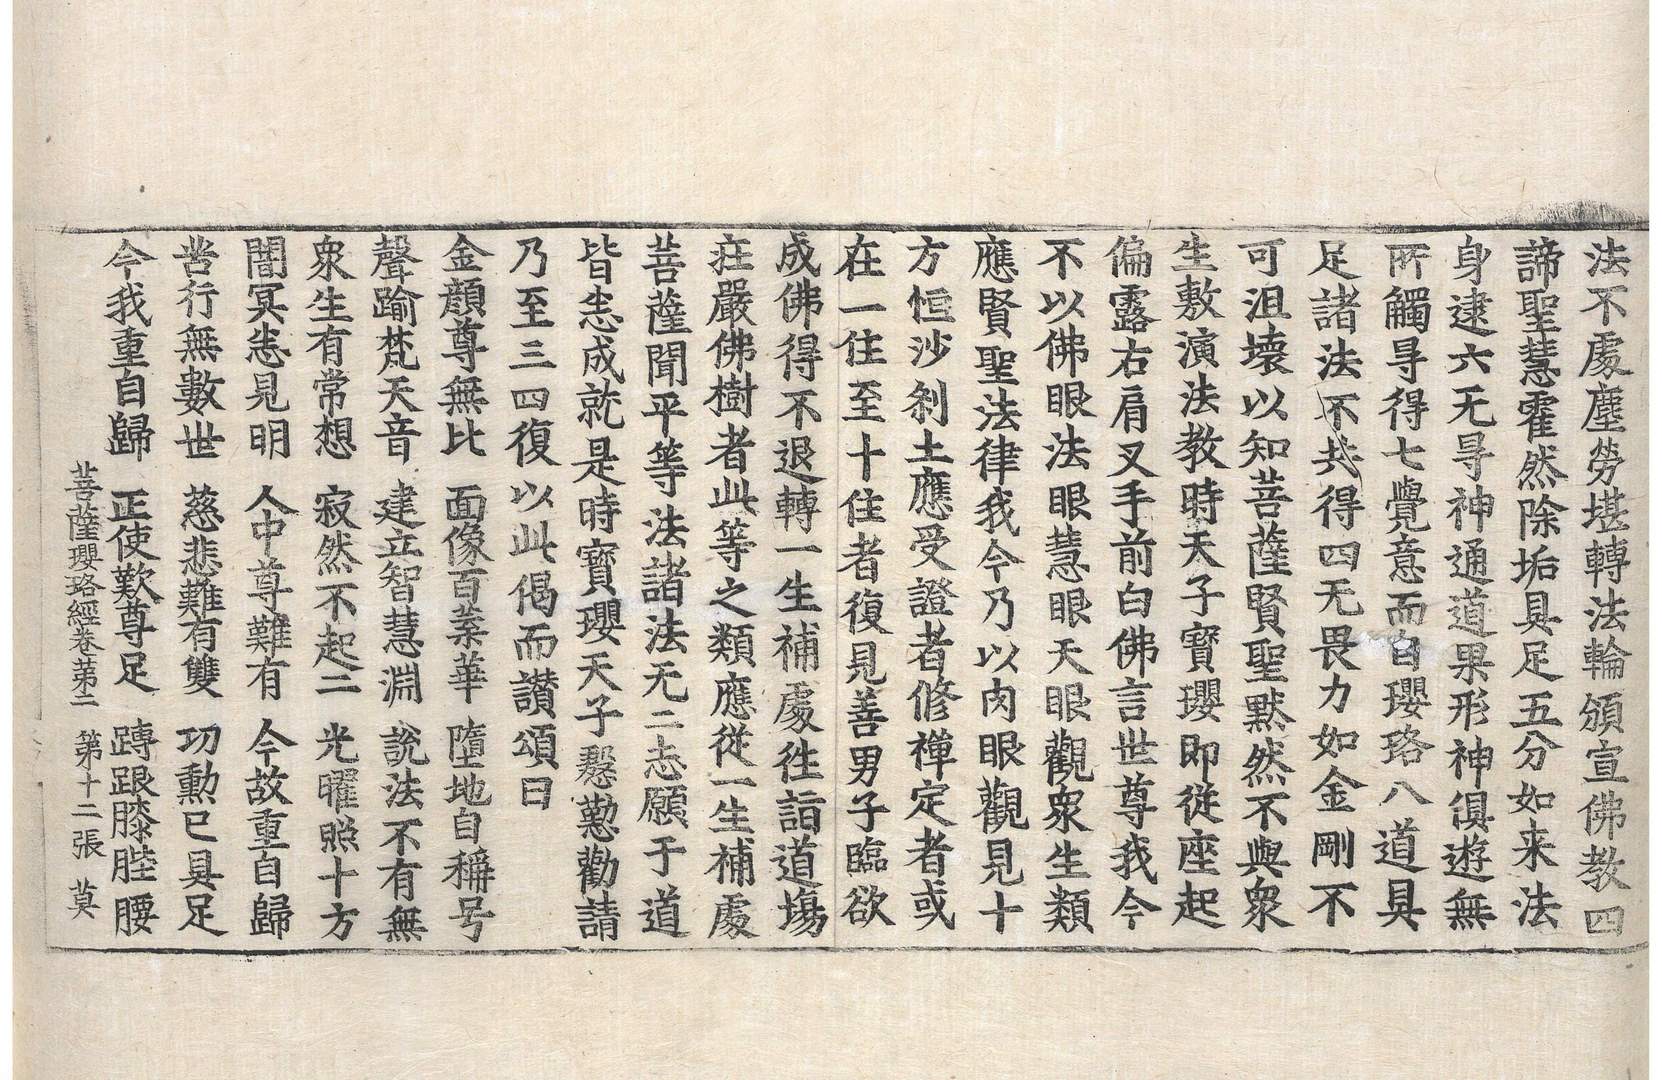 法不處塵勞堪轉法輪頒宣佛教四
諦聖慧霍然除垢具足五分如来法
身逮六无㝵神通道果形神俱遊無
所觸㝵得七覺意而自瓔珞八道具
足諸法不共得四无畏力如金剛不
可沮壞以知菩薩賢聖默然不與衆
生敷演法教時天子寶瓔即從座起
偏露右肩叉手前白佛言世尊我今
不以佛眼法眼慧眼天眼觀衆生類
應賢聖法律我今乃以肉眼觀見十
方恒沙刹土應受證者修禪定者或
在一住至十住者復見善男子臨欲
成佛得不退轉一生補處徃詣道塲
疘嚴佛樹者此等之類應從一生補處
菩薩聞平等法諸法无二志願于道
皆悉成就是時寶瓔天子慇懃勸請
乃至三四復以此偈而讃頌曰
金顔尊無比 面像百葉華 墮地自稱号
聲踰梵天音 建立智慧淵 說法不有無
衆生有常想 寂然不起二 光曜照十方
闇冥悉見明 人中尊難有 今故重自歸
苦行無數世 慈悲難有雙 功勳已具足
今我重自歸 正使歎尊足 䏝踝膝䏶腰
菩薩瓔珞經卷苐二 第十二張 莫